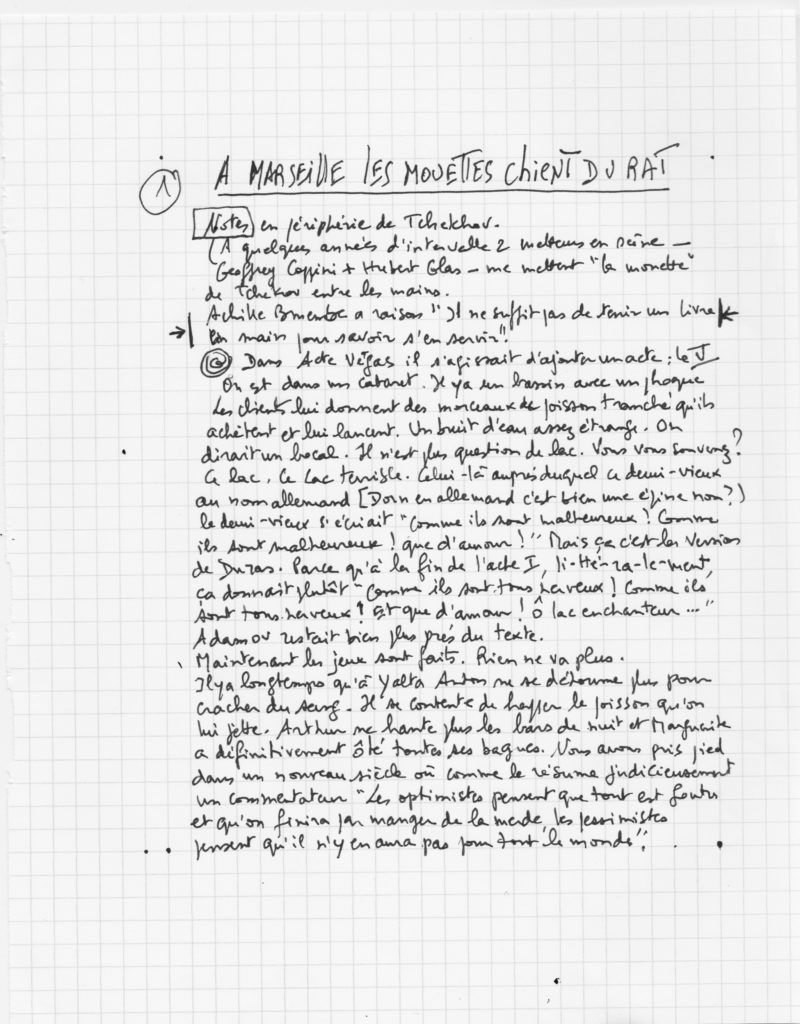 1
A MARSEILLE LES MOUETTES CHIENT DU RAT
Notes en périphérie de Tchekhov.
(A quelques années d'intervalle 2 metteurs en scène —
Geoffrey Coppini + Hubert Colas — me mettent "la mouette"
de Tchekov entre les mains.
Achille a raison "Il ne suffit pas de tenir un livre
en main pour savoir s'en servir".
Dans Acte Végas il s'agissait d'ajouter un acte : le V
On est dans un cabaret. Il y a un bassin avec un phoque
Les clients lui donnent des morceaux de poisson tranché qu'ils
achètent et lui lancent. Un bruit d'eau assez étrange. On
dirait un bocal. Il n'est plus question de lac. Vous vous souvenez?
Ce lac. Ce Lac terrible. Celui-là auprès duquel ce demi-vieux
au nom allemand [Dorn en allemand c'est bien une épine non?)
le demi-vieux s'écriait "Comme ils sont malheureux! Comme
ils sont malheureux! que d'amour!" Mais ça c'est la version
de Duras. Parce qu'à la fin de l'acte I, li-tté-ra-le-ment,
ça donnait plutôt "Comme ils sont tous nerveux! Comme ils
sont tous nerveux! Et que d'amour! Ô lac enchanteur..."
Adamov restait bien plus près du texte.
Maintenant les jeux sont faits. Rien ne va plus.
Il y a longtemps qu'à Yalta Anton ne se détourne plus pour
cracher du sang. Il se contente de happer le poisson qu'on
lui jette. Arthur ne hante plus les bars de nuit et Marguerite
a définitivement ôté toutes ses bagues. Nous avons pris pied
dans un nouveau siècle où comme le résume judicieusement
un commentateur "Les optimistes pensent que tout est foutu
et qu'on finira par manger de la merde, les pessimistes
pensent qu'il n'y en aura pas pour tout le monde".